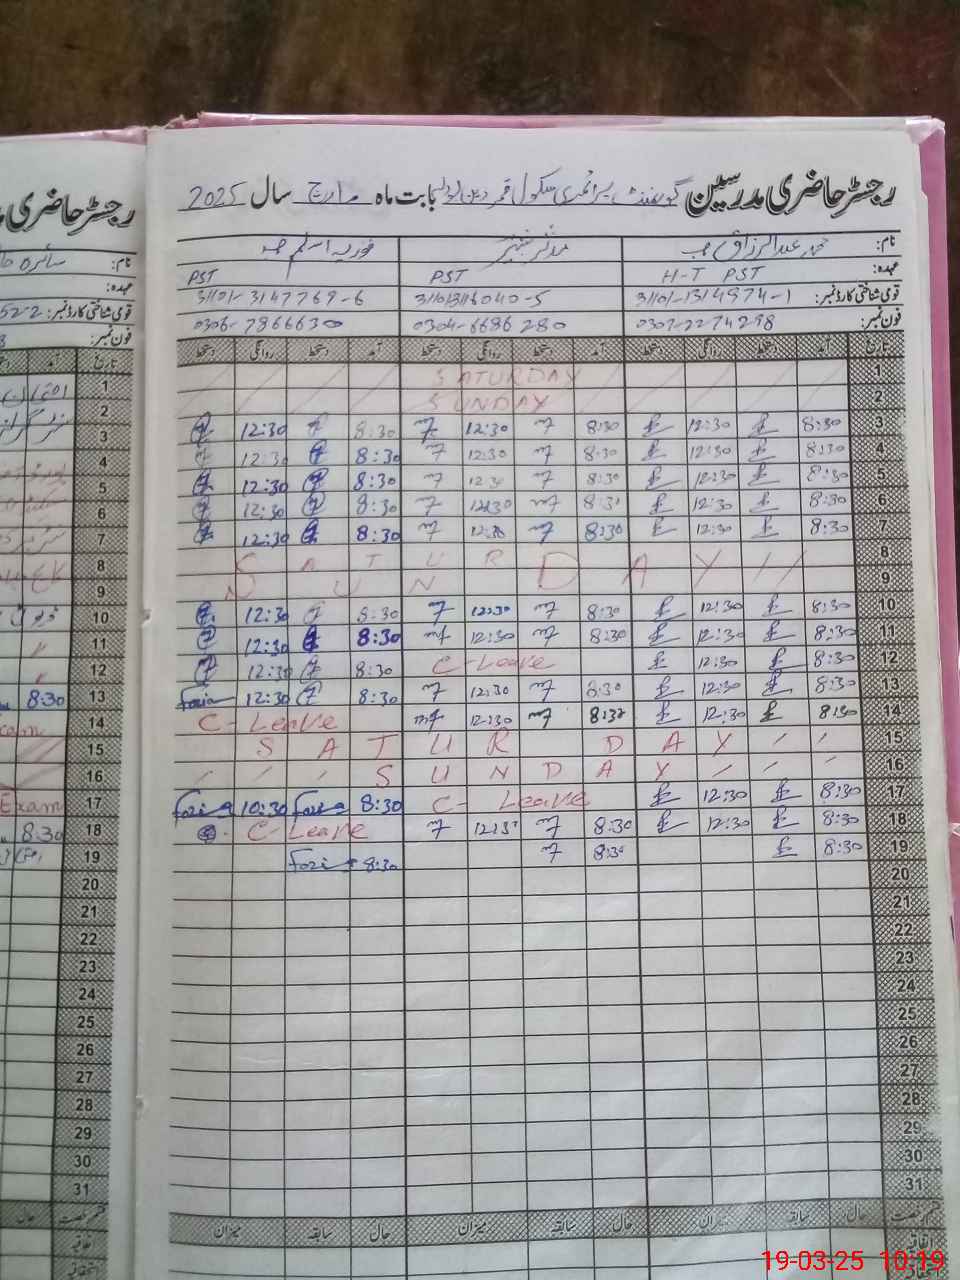 رجسٹر حاضری مدرسین گورنمنٹ پرائمری سکول قمر دین بابت ماہ مارچ سال 2025
نام: محمد عبدالرزاق صاحب
عہدہ: H-T PST PST PST
قومی شناختی کارڈ نمبر: 31101-1314974-1 311013116040-5 31101-3147769-6
فون نمبر: 0307-2274298 0304-6686280 0306-7866630
تاریخ آمد دستخط روانگی دستخط آمد دستخط روانگی دستخط آمد دستخط روانگی دستخط
1 SATURDAY
2 SUNDAY
3 8:30 12:30 8:30 12:30 8:30 12:30
4 8:30 12:30 8:30 12:30 8:30 12:30
5 8:30 12:30 8:30 12:30 8:30 12:30
6 8:30 12:30 8:31 12:30 8:30 12:30
7 8:30 12:30 8:30 12:30 8:30 12:30
8 SATURDAY
9 SUN
10 8:30 12:30 8:30 12:30 8:30 12:30
11 8:30 12:30 8:30 12:30 8:30 12:30
12 8:30 12:30 C-Leave 8:30 12:30
13 8:30 12:30 8:30 12:30 8:30 12:30 Fozia
14 8:30 12:30 8:32 12:30 C-Leave
15 SATURDAY
16 SUNDAY
17 8:30 12:30 C-Leave 8:30 Fozia 10:30 Fozia
18 8:30 12:30 8:30 12:3 C-Leave
19 8:30 8:30 8:30 Fozia
20
21
22
23
24
25
26
27
28
29
30
31
قسم رخصت حال سابقہ میزان حال سابقہ میزان حال سابقہ میزان
اتفاقیہ
استحقاقیہ
رجسٹر حاضری
نام: سائرہ
عہدہ:
قومی شناختی کارڈ نمبر: 522-2
فون نمبر:
تاریخ آمد
1
2
3
4
5
6
7
8
9
10
11
12
13 8:30
14 Exam
15
16
17 Exam
18 8:30
19
20
21
22
23
24
25
26
27
28
29
30
31
قسم رخصت حال
اتفاقیہ
استحقاقیہ
19-03-25 10:19